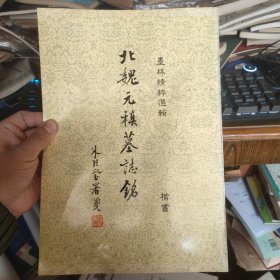 墨林精粹選輯
楷書
北魏元楨墓誌銘
朱琺瑩署箋